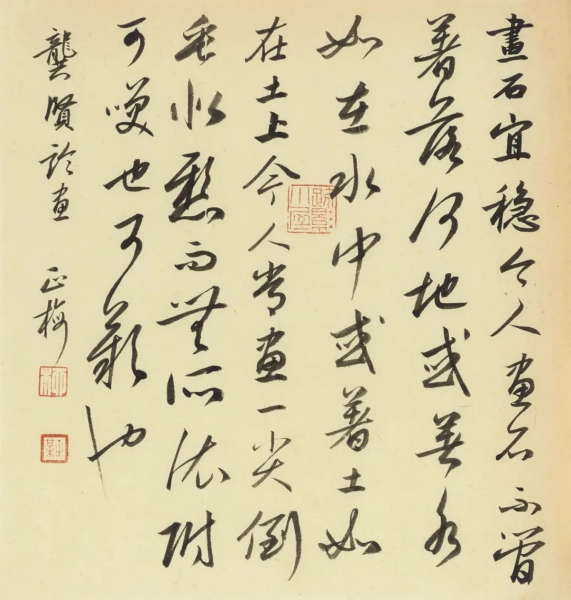 畫石宜穩今人画石不曾
著落何地或著水
如在水中或著土如
在土上今人常画一尖倒
垂水懸而無所依附
可咲也可歎也
龔賢論画 正梅